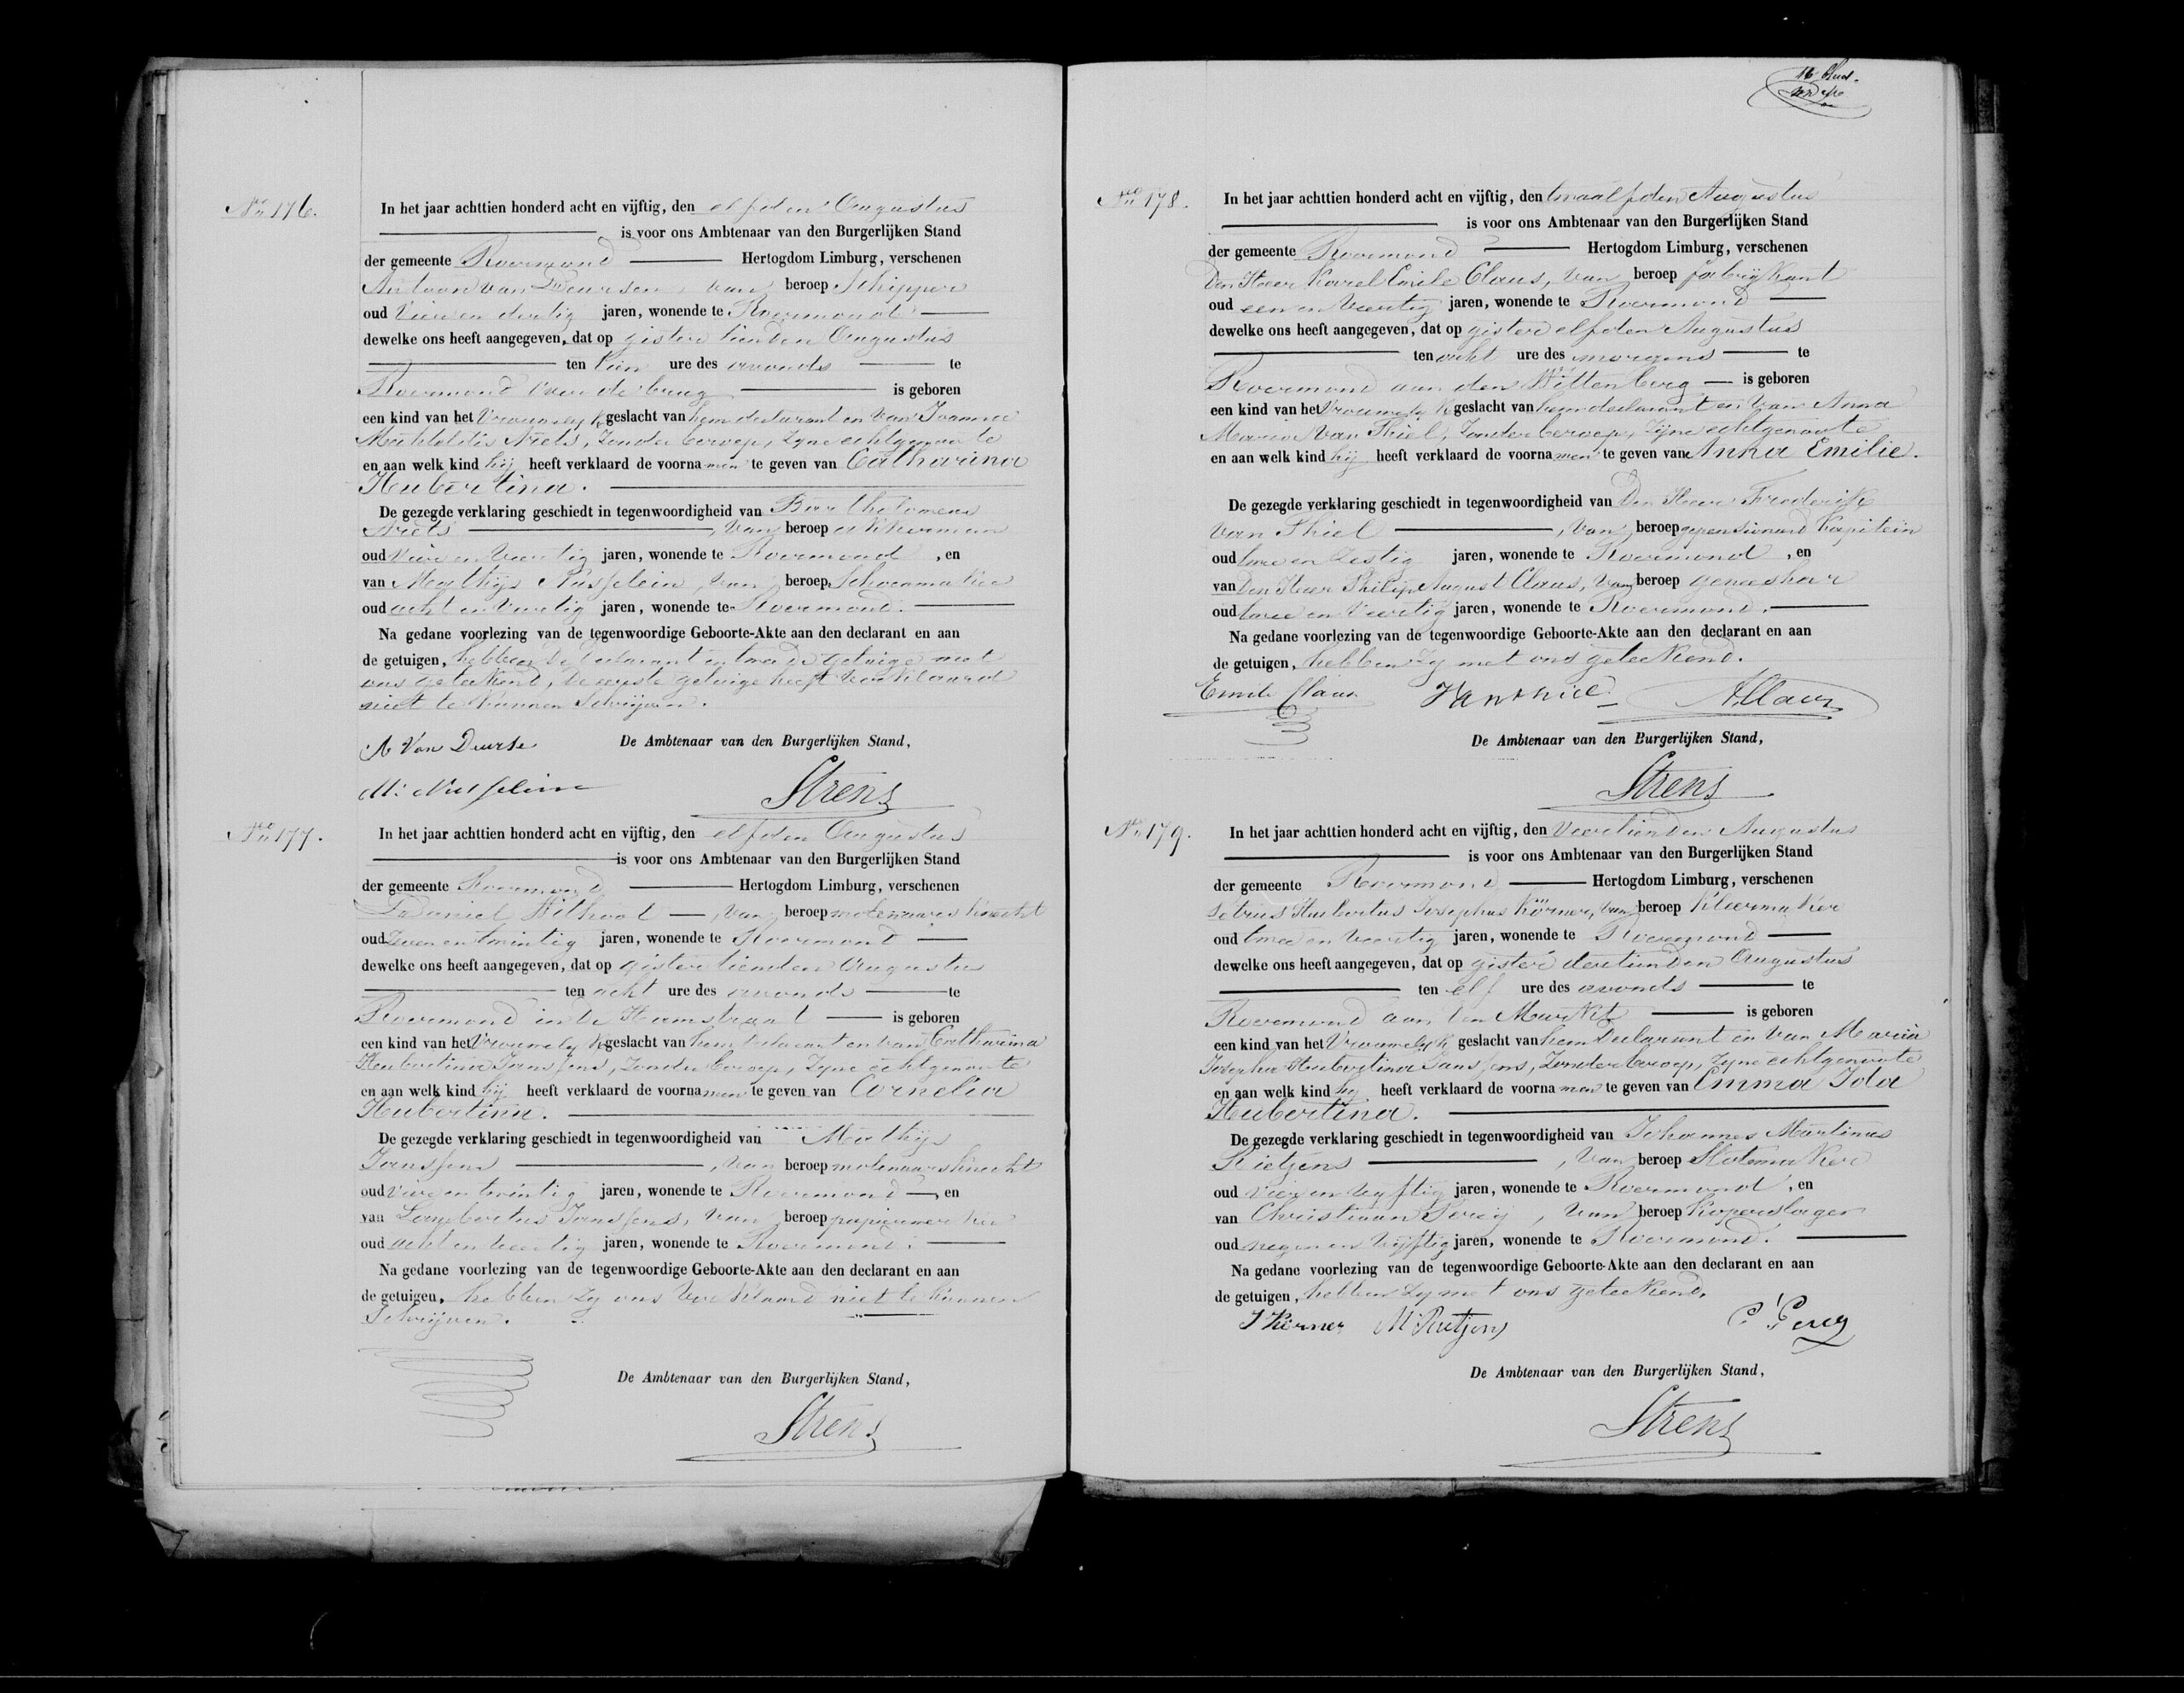 No 176.
In het jaar achttien honderd acht en vijftig, den elfden Augustus
is voor ons Ambtenaar van den Burgerlijken Stand
der gemeente Roermond Hertogdom Limburg, verschenen
Antoon van Deursen, van beroep Schipper
oud Vier en dertig jaren, wonende te Roermond
dewelke ons heeft aangegeven, dat op gister tienden Augustus
ten tien ure des avonds te
Roermond over de brug is geboren
een kind van het Vrouwelyk geslacht van hem declarant en van Joanna
Mechtildis Ariets, Zonder beroep, Zyne echtgenoote
en aan welk kind hij heeft verklaard de voornamen te geven van Catharina
Hubertina.
De gezegde verklaring geschiedt in tegenwoordigheid van Bartholomeus
Ariets, van beroep akkerman
oud Vier en Veertig jaren, wonende te Roermond, en
van Mathijs Nusselein, van beroep Schoenmaker
oud acht en Veertig jaren, wonende te Roermond.
Na gedane voorlezing van de tegenwoordige Geboorte-Akte aan den declarant en aan
de getuigen, hebben de declarant en tweede getuige met
ons geteekend, de eerste getuige heeft verklaard
niet te kunnen Schrijven.
A Van Deurse
De Ambtenaar van den Burgerlijken Stand,
M: Nusselein
Strens
No 177.
In het jaar achttien honderd acht en vijftig, den elfden Augustus
is voor ons Ambtenaar van den Burgerlijken Stand
der gemeente Roermond Hertogdom Limburg, verschenen
Daniel Withoot, van beroep molenaars knecht
oud Zeven en twintig jaren, wonende te Roermond
dewelke ons heeft aangegeven, dat op gister tienden Augustus
ten acht ure des avonds te
Roermond in de Hamstraat is geboren
een kind van het Vrouwelyk geslacht van hem declarant en van Catharina
Hubertina Janssens, Zonder beroep, Zyne echtgenoote
en aan welk kind hij heeft verklaard de voornamen te geven van Cornelia
Hubertina.
De gezegde verklaring geschiedt in tegenwoordigheid van Mathijs
Janssens, van beroep molenaarsknecht
oud Vier en twintig jaren, wonende te Roermond, en
van Lambertus Janssens, van beroep papiermaker
oud acht en Veertig jaren, wonende te Roermond.
Na gedane voorlezing van de tegenwoordige Geboorte-Akte aan den declarant en aan
de getuigen, hebben Zy ons Verklaard niet te kunnen
Schrijven.
De Ambtenaar van den Burgerlijken Stand,
Strens
16
No 178.
In het jaar achttien honderd acht en vijftig, den twaalfden Augustus
is voor ons Ambtenaar van den Burgerlijken Stand
der gemeente Roermond Hertogdom Limburg, verschenen
Den Heer Karel Emile Claus, van beroep fabrijkant
oud een en Veertig jaren, wonende te Roermond
dewelke ons heeft aangegeven, dat op gister elfden Augustus
ten acht ure des morgens te
Roermond aan den Wittenberg is geboren
een kind van het Vrouwelyk geslacht van hem declarant en van Anna
Maria van Thiel, Zonder beroep, Zijne echtgenoote
en aan welk kind hij heeft verklaard de voornamen te geven van Anna Emilie.
De gezegde verklaring geschiedt in tegenwoordigheid van Den Heer Frederik
van Thiel, van beroep gepensioneerd Kapitein
oud twee en Zestig jaren, wonende te Roermond, en
van Den Heer Philip August Claus, van beroep geneesheer
oud twee en Veertig jaren, wonende te Roermond.
Na gedane voorlezing van de tegenwoordige Geboorte-Akte aan den declarant en aan
de getuigen, hebben Zy met ons geteekend.
Emile Claus Vanthiel AClaus
De Ambtenaar van den Burgerlijken Stand,
Strens
No 179.
In het jaar achttien honderd acht en vijftig, den Veertienden Augustus
is voor ons Ambtenaar van den Burgerlijken Stand
der gemeente Roermond Hertogdom Limburg, verschenen
Petrus Hubertus Josephus Körner, van beroep Kleermaker
oud twee en Veertig jaren, wonende te Roermond
dewelke ons heeft aangegeven, dat op gister dertienden Augustus
ten elf ure des avonds te
Roermond aan den Markt is geboren
een kind van het Vrouwelyk geslacht van hem declarant en van Maria
Josepha Hubertina Janssens, Zonder beroep, Zyne echtgenoote
en aan welk kind hij heeft verklaard de voornamen te geven van Emma Ida
Hubertina.
De gezegde verklaring geschiedt in tegenwoordigheid van Johannes Martinus
Rietjens, van beroep Slotemaker
oud vier en Vyftig jaren, wonende te Roermond, en
van Christiaan Perey, van beroep Koperslager
oud negen en Vijftig jaren, wonende te Roermond.
Na gedane voorlezing van de tegenwoordige Geboorte-Akte aan den declarant en aan
de getuigen, hebben Zy met ons geteekend.
J Körner M Rietjens C Perey
De Ambtenaar van den Burgerlijken Stand,
Strens